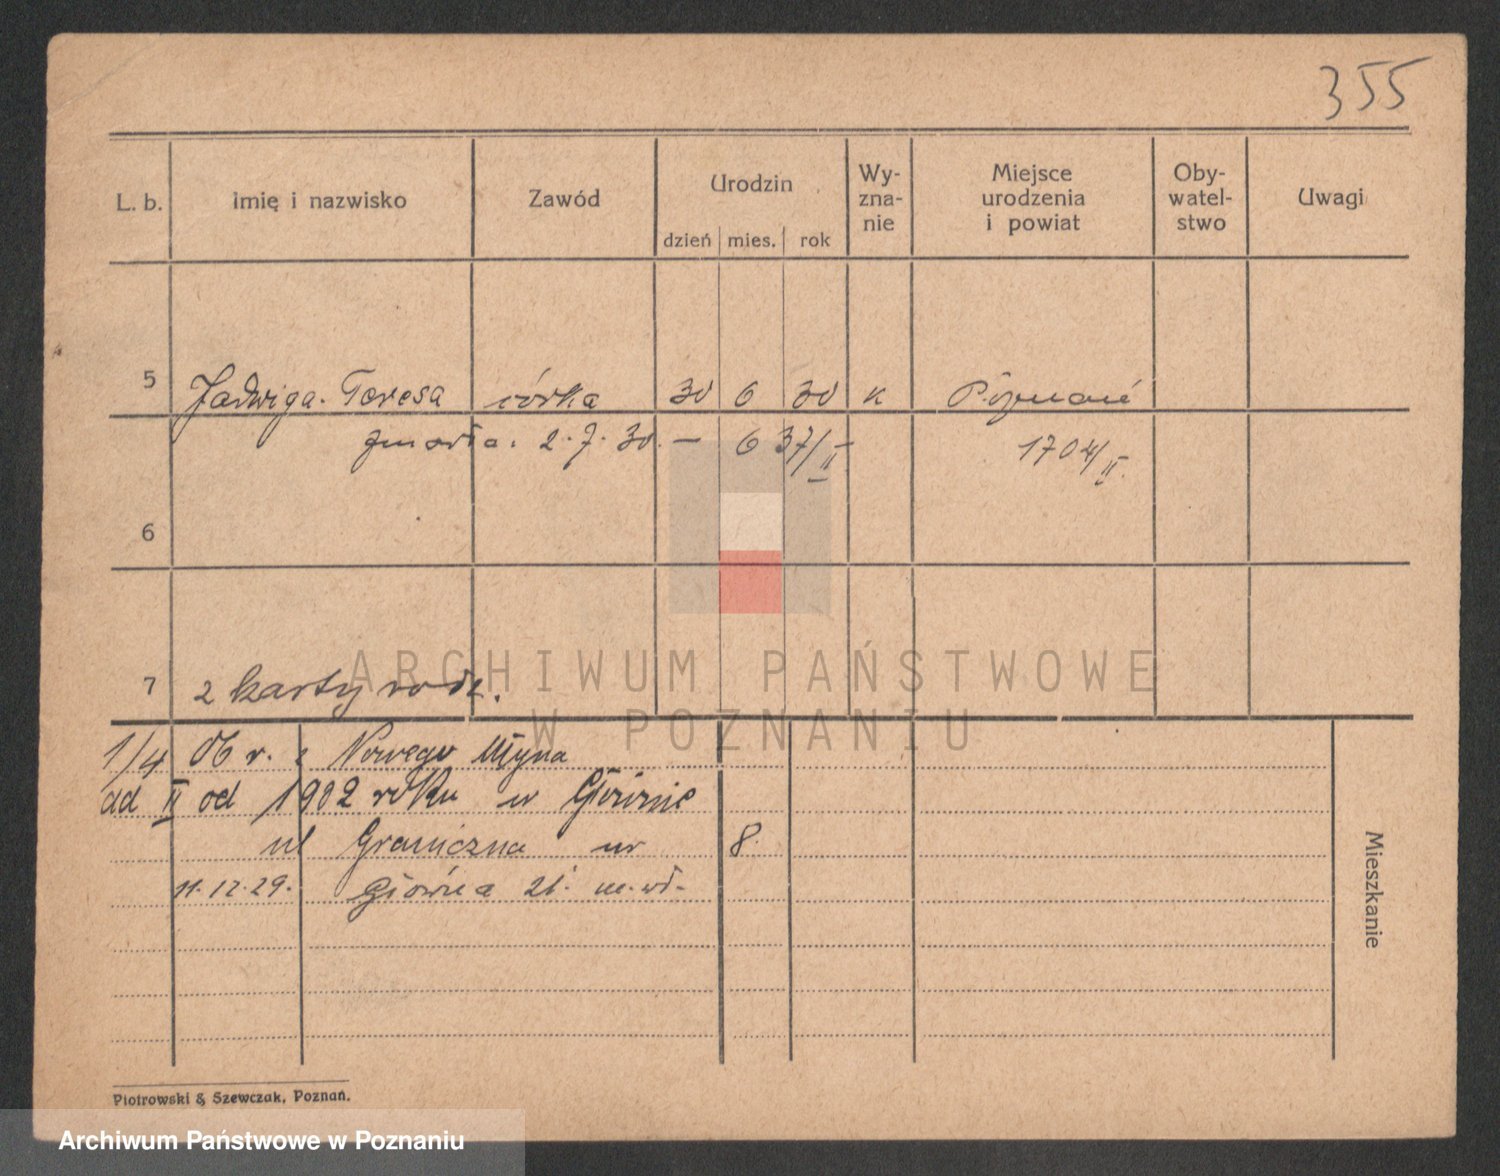 355
L. b. Imię i nazwisko Zawód Urodzin Wy-zna-nie Miejsce urodzenia i powiat Oby-watel-stwo Uwagi
dzień mies. rok
5 Jadwiga Teresa córka 30 6 30 k Poznań
zmarła 2.7.30. – 6 37/II – 1704/II.
6
7 2 karty rodz.
ARCHIWUM PAŃSTWOWE
W POZNANIU
1/4 06 r. z Nowego Młyna
ad II od 1902 roku w Głównie
ul Graniczna nr 8.
11.12.29. Główna 21.
Mieszkanie
Piotrowski & Szewczak, Poznań.
Archiwum Państwowe w Poznaniu